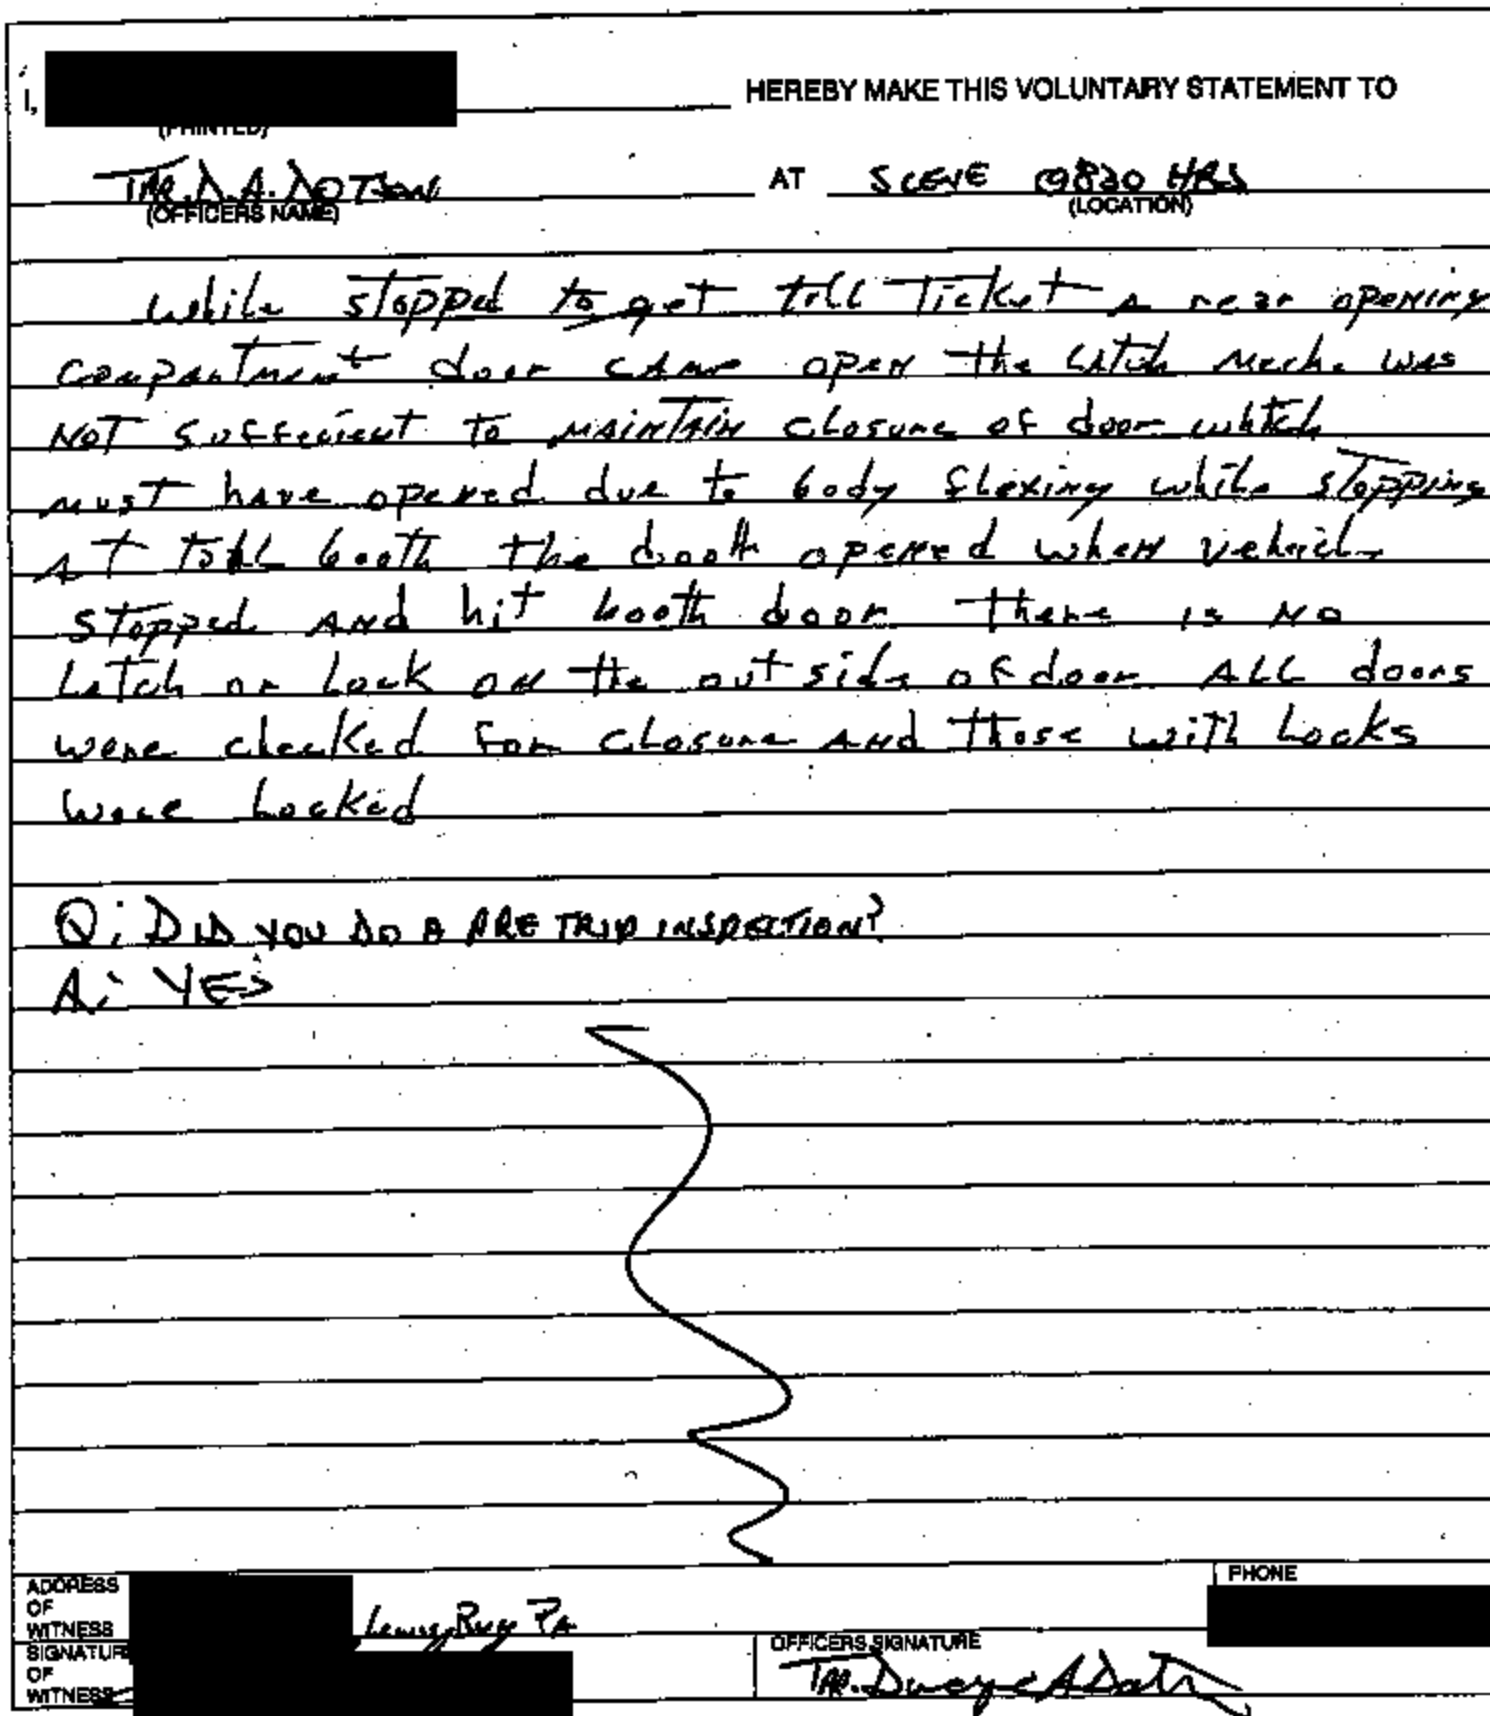 I, HEREBY MAKE THIS VOLUNTARY STATEMENT TO
(PRINTED)
TPR. D.A. DOTSON AT SCENE @830 HRS
(OFFICERS NAME) (LOCATION)
while stopped to get toll Ticket A rear opening
compartment door came open the Latch Mech. was
NOT sufficient to MAINTAIN closure of door which
must have opened due to body flexing while stopping
AT toll booth the door opened when vehicle
stopped AND hit booth door there is NO
Latch or Lock on the out side of door ALL doors
were checked for closure AND those with Locks
were Locked
Q: DID YOU DO A PRE TRIP INSPECTION?
A: YES
ADDRESS OF WITNESS PA PHONE
SIGNATURE OF WITNESS OFFICERS SIGNATURE
TPR. A